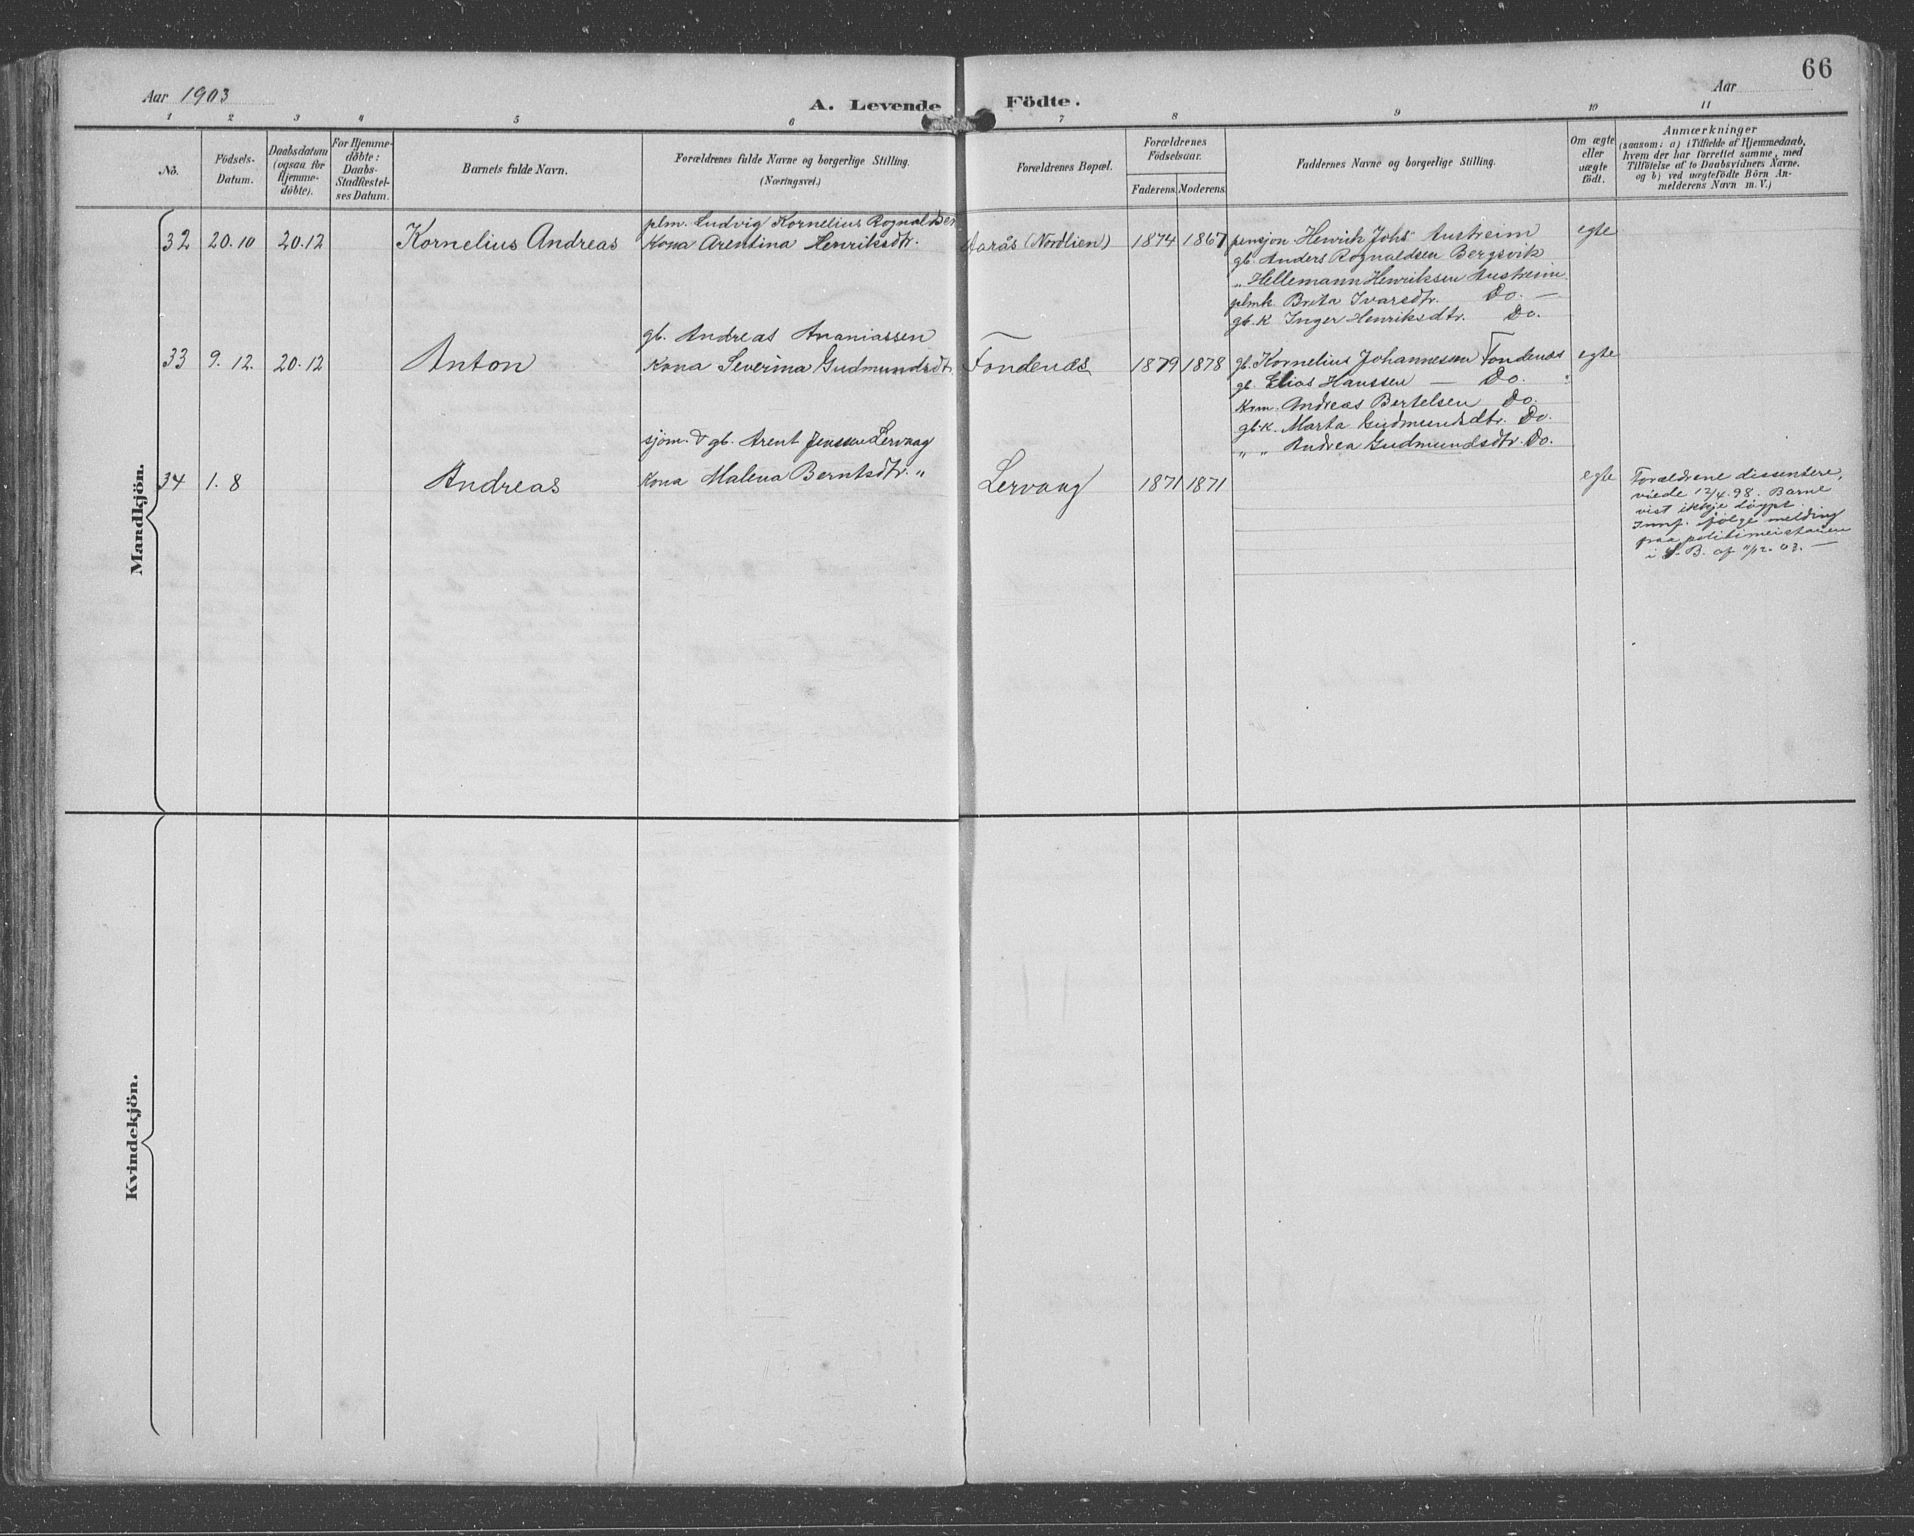 66
Aar 1903
A. Levende Födte.
Aar
1 2 3 4 5 6 7 8 9 10 11
No.
Födsels-
Datum.
Daabsdatum
(ogsaa for
Hjemme-
döbte).
For Hjemme-
döbte:
Daabs-
Stadfæstel-
ses Datum.
Barnets fulde Navn.
Forældrenes fulde Navne og borgerlige Stilling.
(Næringsvei.)
Forældrenes Bopæl.
Forældrenes
Födselsaar.
Faderens. Moderens.
Faddernes Navne og borgerlige Stilling.
Om ægte
eller
uægte
födt.
Anmærkninger
(saasom: a) i Tilfælde af Hjemmedaab,
hvem der har forrettet samme, med
Tilföielse af to Daabsvidners Navne.
og b) ved uægtefödte Börn An-
melderens Navn m. V.)
Mandkjön.
32 20.10 20.12 Kornelius Andreas
plm. Ludvig Kornelius Rognaldsen
Kona Arentina Henriksdtr.
Aarås (Nordlien) 1874 1867
pensjon Henrik Johs Austreim
gb. Anders Rognaldsen Bergsvik
„ Hellemann Henriksen Austreim
plmk. Brita Ivarsdtr. Do. —
gb. K Inger Henriksdtr. Do.
egte
33 9.12. 20.12 Anton
gb. Andreas Ananiassen
Kona Severina Gudmundsdt.
Fondenes 1879 1878
gb. Kornelius Johannessen Fondenes
gb. Elias Hanssen — Do.
Krm. Andreas Bertelsen Do.
gb.K. Marta Gudmundsdtr. Do.
„ „ Andrea Gudmundsdtr. Do.
egte
34 1.8 Andreas
sjøm. & gb. Arent Jenssen Lervaag
Kona Malena Berntsdtr. „
Lervaag 1871 1871
egte
Forældrene dissentere,
viede 12/4.98. Barne
vist ikkje døypt.
Innf. følge melding
fraa politimeistaren
i S. B. af 11/12.03. —
Kvindekjön.